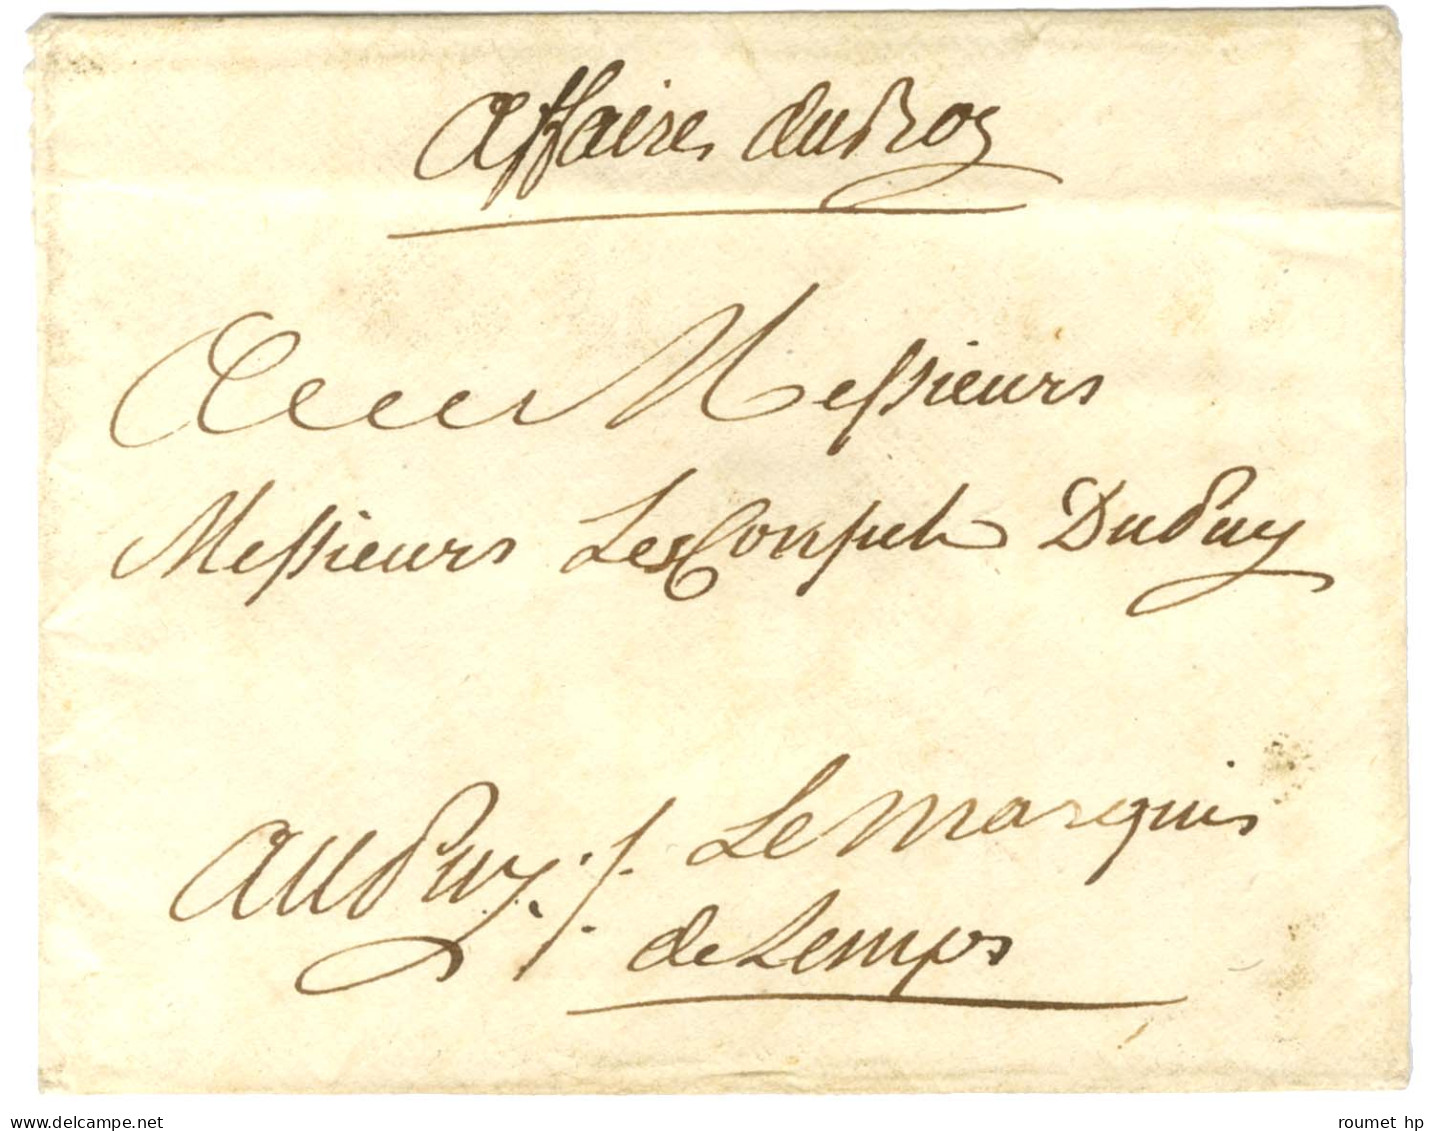 Affaires du Roy
A Messieurs
Messieurs Les Consuls Du Puy
Au Puy ./. Le marquis
de Lemps
www.delcampe.net
roumet hp